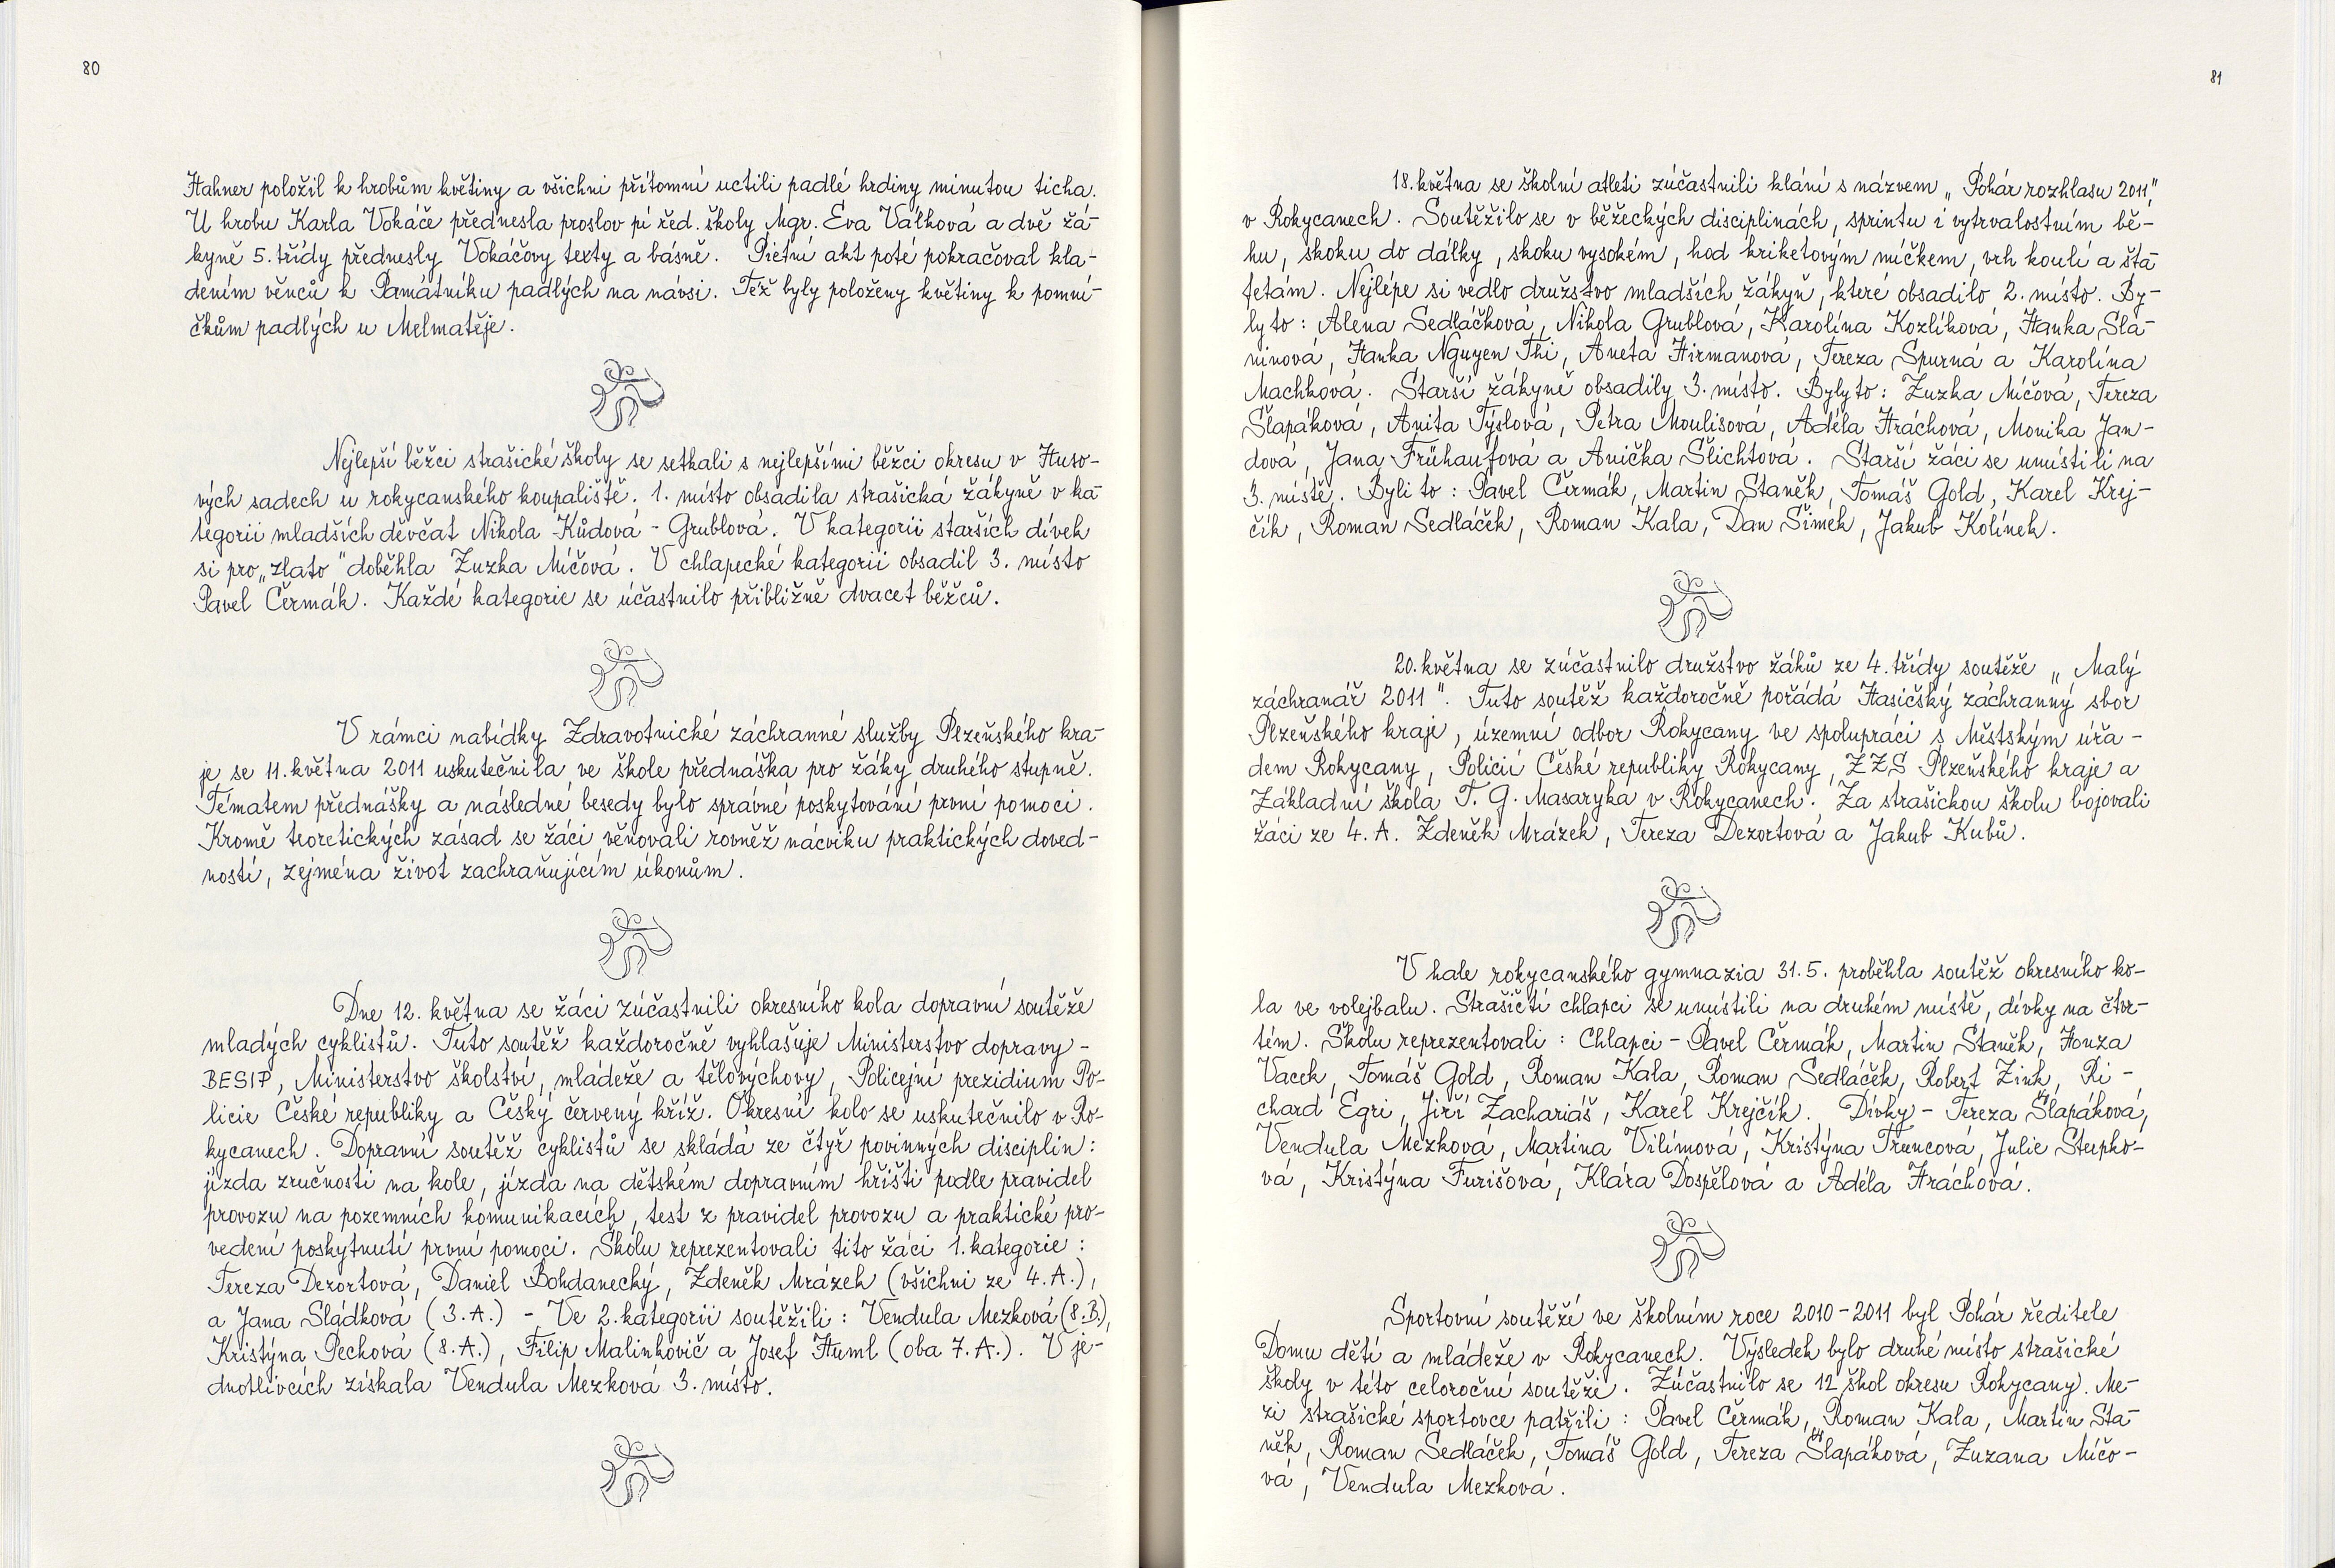 80
Hahner položil k hrobům květiny a všichni přítomní uctili padlé hrdiny minutou ticha.
U hrobu Karla Vokáče přednesla proslov pí řed. školy Mgr. Eva Válková a dvě žá-
kyně 5. třídy přednesly Vokáčovy texty a básně. Pietní akt poté pokračoval kla-
dením věnců k Památníku padlých na návsi. Též byly položeny květiny k pomní-
čkům padlých u Melmatěje.
Nejlepší běžci strašické školy se setkali s nejlepšími běžci okresu v Huso-
vých sadech u rokycanského koupaliště. 1. místo obsadila strašická žákyně v ka-
tegorii mladších děvčat Nikola Kůdová - Grublová. V kategorii starších dívek
si pro „zlato" doběhla Zuzka Míčová. V chlapecké kategorii obsadil 3. místo
Pavel Čermák. Každé kategorie se účastnilo přibližně dvacet běžců.
V rámci nabídky Zdravotnické záchranné služby Plzeňského kra-
je se 11. května 2011 uskutečnila ve škole přednáška pro žáky druhého stupně.
Tématem přednášky a následné besedy bylo správné poskytování první pomoci.
Kromě teoretických zásad se žáci věnovali rovněž nácviku praktických doved-
ností, zejména život zachraňujícím úkonům.
Dne 12. května se žáci zúčastnili okresního kola dopravní soutěže
mladých cyklistů. Tuto soutěž každoročně vyhlašuje Ministerstvo dopravy -
BESIP, Ministerstvo školství, mládeže a tělovýchovy, Policejní prezidium Po-
licie České republiky a Český červený kříž. Okresní kolo se uskutečnilo v Ro-
kycanech. Dopravní soutěž cyklistů se skládá ze čtyř povinných disciplin:
jízda zručnosti na kole, jízda na dětském dopravním hřišti podle pravidel
provozu na pozemních komunikacích, test z pravidel provozu a praktické pro-
vedení poskytnutí první pomoci. Školu reprezentovali tito žáci 1. kategorie:
Tereza Dezortová, Daniel Bohdanecký, Zdeněk Mrázek (všichni ze 4. A.),
a Jana Sládková (3. A.) - Ve 2. kategorii soutěžili: Vendula Mezková (8. B.),
Kristýna Pechová (8. A.), Filip Malinkovič a Josef Huml (oba 7. A.). V je-
dnotlivcích získala Vendula Mezková 3. místo.
81
18. května se školní atleti zúčastnili klání s názvem „Pohár rozhlasu 2011",
v Rokycanech. Soutěžilo se v běžeckých disciplinách, sprintu i vytrvalostním bě-
hu, skoku do dálky, skoku vysokém, hod kriketovým míčkem, vrh koulí a šta-
fetám. Nejlépe si vedlo družstvo mladších žákyň, které obsadilo 2. místo. By-
ly to: Alena Sedláčková, Nikola Grublová, Karolína Kozlíková, Hanka Sla-
ninová, Hanka Nguyen Thi, Aneta Hirmanová, Tereza Spurná a Karolína
Machková. Starší žákyně obsadily 3. místo. Byly to: Zuzka Míčová, Tereza
Šlapáková, Anita Týslová, Petra Moulisová, Adéla Hráchová, Monika Jan-
dová, Jana Frühaufová a Anička Šlichtová. Starší žáci se umístili na
3. místě. Byli to: Pavel Čermák, Martin Staněk, Tomáš Gold, Karel Krej-
čík, Roman Sedláček, Roman Kala, Dan Šimek, Jakub Kolínek.
20. května se zúčastnilo družstvo žáků ze 4. třídy soutěže „Malý
záchranář 2011". Tuto soutěž každoročně pořádá Hasičský záchranný sbor
Plzeňského kraje, územní odbor Rokycany ve spolupráci s Městským úřa-
dem Rokycany, Policií České republiky Rokycany, ZZS Plzeňského kraje a
Základní škola T. G. Masaryka v Rokycanech. Za strašickou školu bojovali
žáci ze 4. A. Zdeněk Mrázek, Tereza Dezortová a Jakub Kubů.
V hale rokycanského gymnazia 31. 5. proběhla soutěž okresního ko-
la ve volejbalu. Strašičtí chlapci se umístili na druhém místě, dívky na čtvr-
tém. Školu reprezentovali: Chlapci - Pavel Čermák, Martin Staněk, Honza
Vacek, Tomáš Gold, Roman Kala, Roman Sedláček, Robert Zink, Ri-
chard Egri, Jiří Zachariáš, Karel Krejčík. Dívky - Tereza Šlapáková,
Vendula Mezková, Martina Vilímová, Kristýna Truncová, Julie Stupko-
vá, Kristýna Furišová, Klára Dospělová a Adéla Hráchová.
Sportovní soutěží ve školním roce 2010-2011 byl Pohár ředitele
Domu dětí a mládeže v Rokycanech. Výsledek bylo druhé místo strašické
školy v této celoroční soutěži. Zúčastnilo se 12 škol okresu Rokycany. Me-
zi strašické sportovce patřili: Pavel Čermák, Roman Kala, Martin Sta-
něk, Roman Sedláček, Tomáš Gold, Tereza Šlapáková, Zuzana Míčo-
vá, Vendula Mezková.